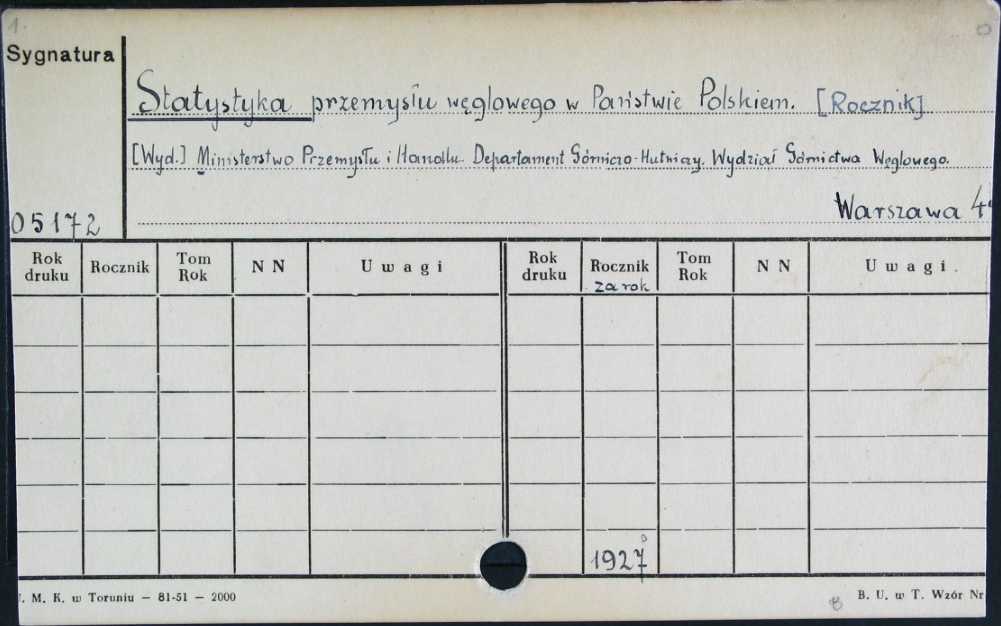 1.
Sygnatura
Statystyka przemysłu węglowego w Państwie Polskiem. [Rocznik]
[Wyd.] Ministerstwo Przemysłu i Handlu. Departament Górniczo-Hutniczy. Wydział Górnictwa Węglowego.
05172 Warszawa 4°
Rok druku Rocznik Tom Rok N N Uwagi Rok druku Rocznik za rok Tom Rok N N Uwagi
1927
M. K. w Toruniu — 81-51 — 2000 B. U. w T. Wzór Nr